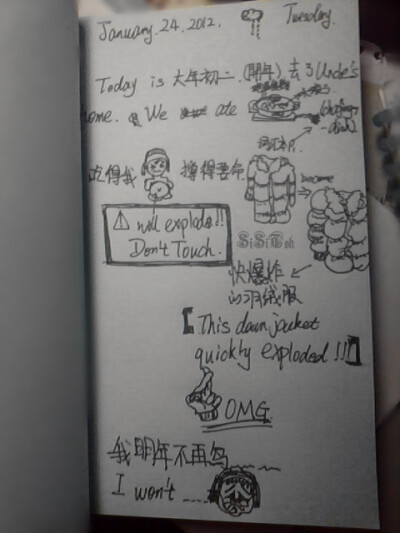 January.24.2012. Tuesday.
Today is 大年初二 (開年) 去了Uncle's
home. We ate
吃得我 撑得要命
⚠ will explode!!
Don't Touch.
SiSiToh
快爆炸
的羽绒服
【This down jacket
quickly exploded !!!】
OMG.
我明年不再
I won't